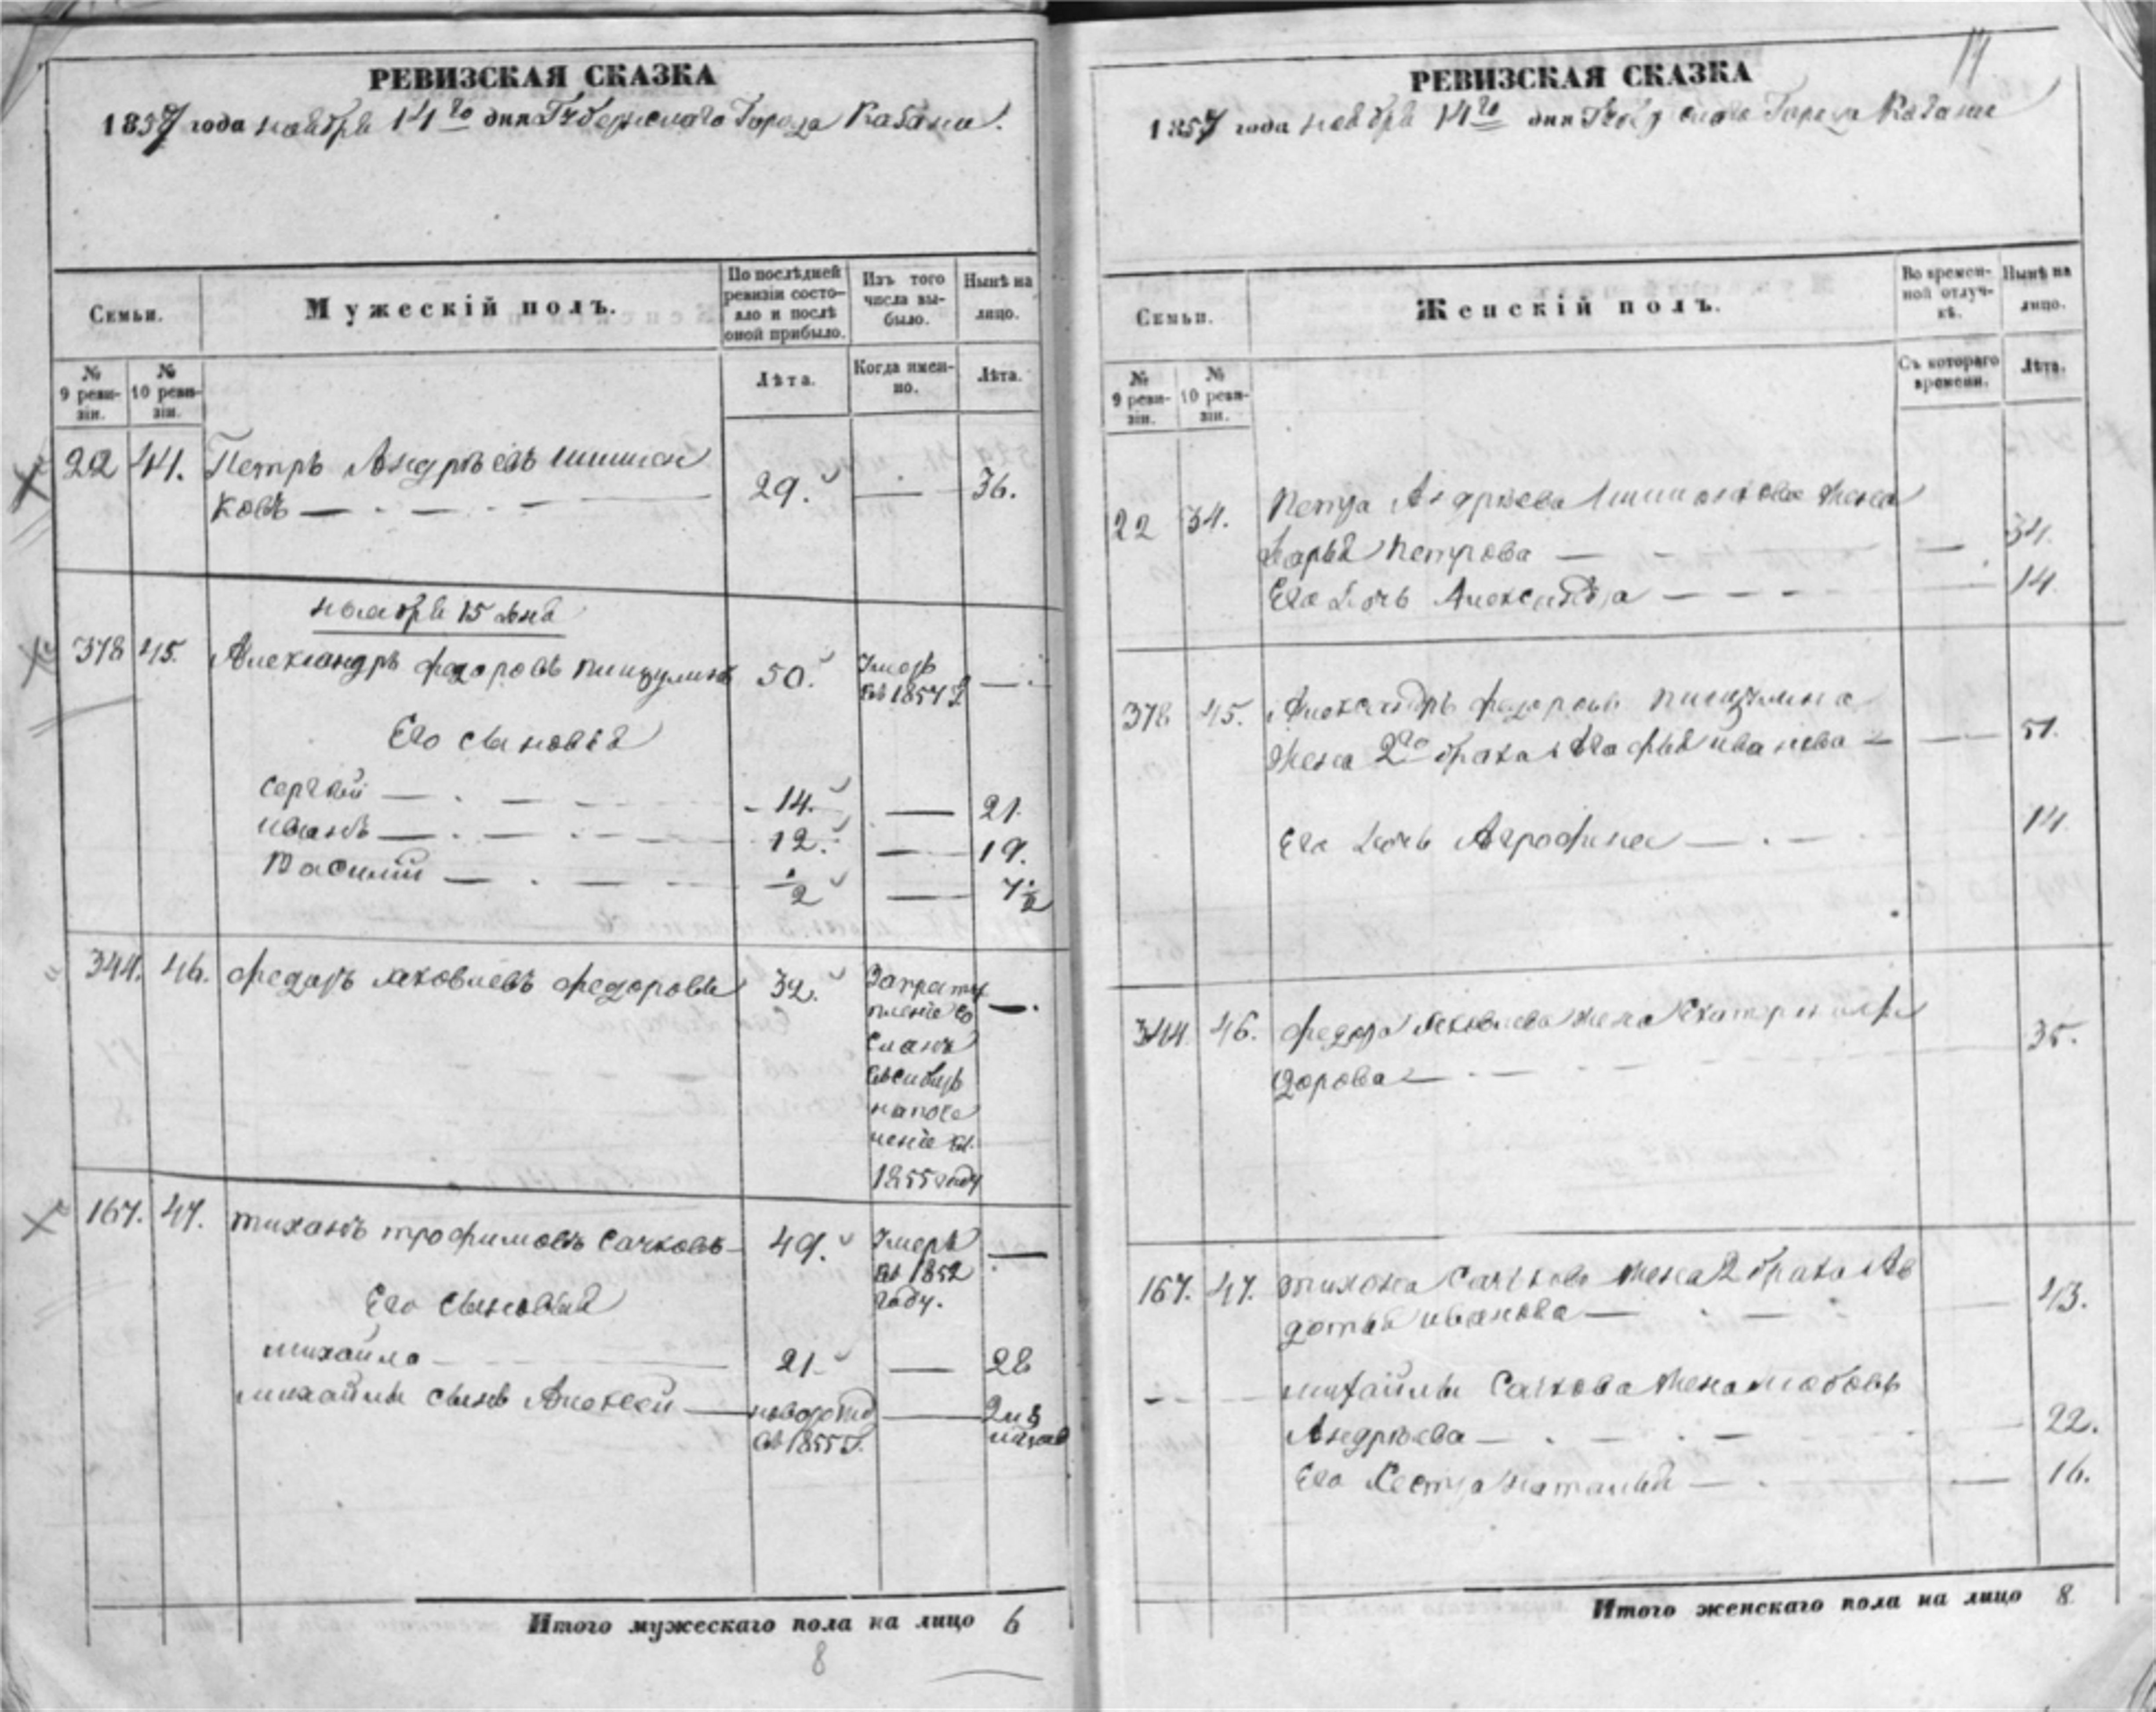 РЕВИЗСКАЯ СКАЗКА
1857 года ноября 14го дня Губернскаго Города Казани.
Семьи.
Мужескій полъ.
По послѣдней ревизіи состояло и послѣ оной прибыло.
Изъ того числа выбыло.
Нынѣ на лицо.
№ 9 ревизіи.
№ 10 ревизіи.
Лѣта.
Когда именно.
Лѣта.
22 44. Петръ Андрѣевъ 29. — 36.
ковъ
ноября 15 дня
378 45. Александръ федоровъ 50. Умеръ въ 1857 —
Его сыновья
Сергѣй — 14. — 21.
иванъ — 12. — 19.
Василий — 1/2 — 7 1/2
344. 46. федоръ яковлевъ федоровъ 32. —
сланъ
въ сибирь
на посе
ление въ
1855 году
167. 47. тихонъ трофимовъ Сачковъ 49. Умеръ —
въ 1852
году.
Его сыновья
михайло 21. — 28
михайлы сынъ Алексей —
въ 1855 г.
Итого мужескаго пола на лицо 6
8
14
РЕВИЗСКАЯ СКАЗКА
1857 года ноября 14го дня Города Казани
Семьи.
Женскій полъ.
Во временной отлучкѣ.
Нынѣ на лицо.
№ 9 ревизіи.
№ 10 ревизіи.
Съ котораго времени.
Лѣта.
22 34. Петра Андрѣева жена
Марья Петрова — 34.
Его дочь Александра — 14.
378 45. федорова
жена 2го брака ивановa — 51.
Его дочь Агрофина — 14.
344 46. федора яковлева жена Екатерина фе
дорова — 35.
167. 47. тихона Сачкова жена 2 брака Ав
дотья иванова — 43.
михайлы Сачкова жена любовь
Андрѣева — 22.
Его Сестра наталья — 16.
Итого женскаго пола на лицо 8